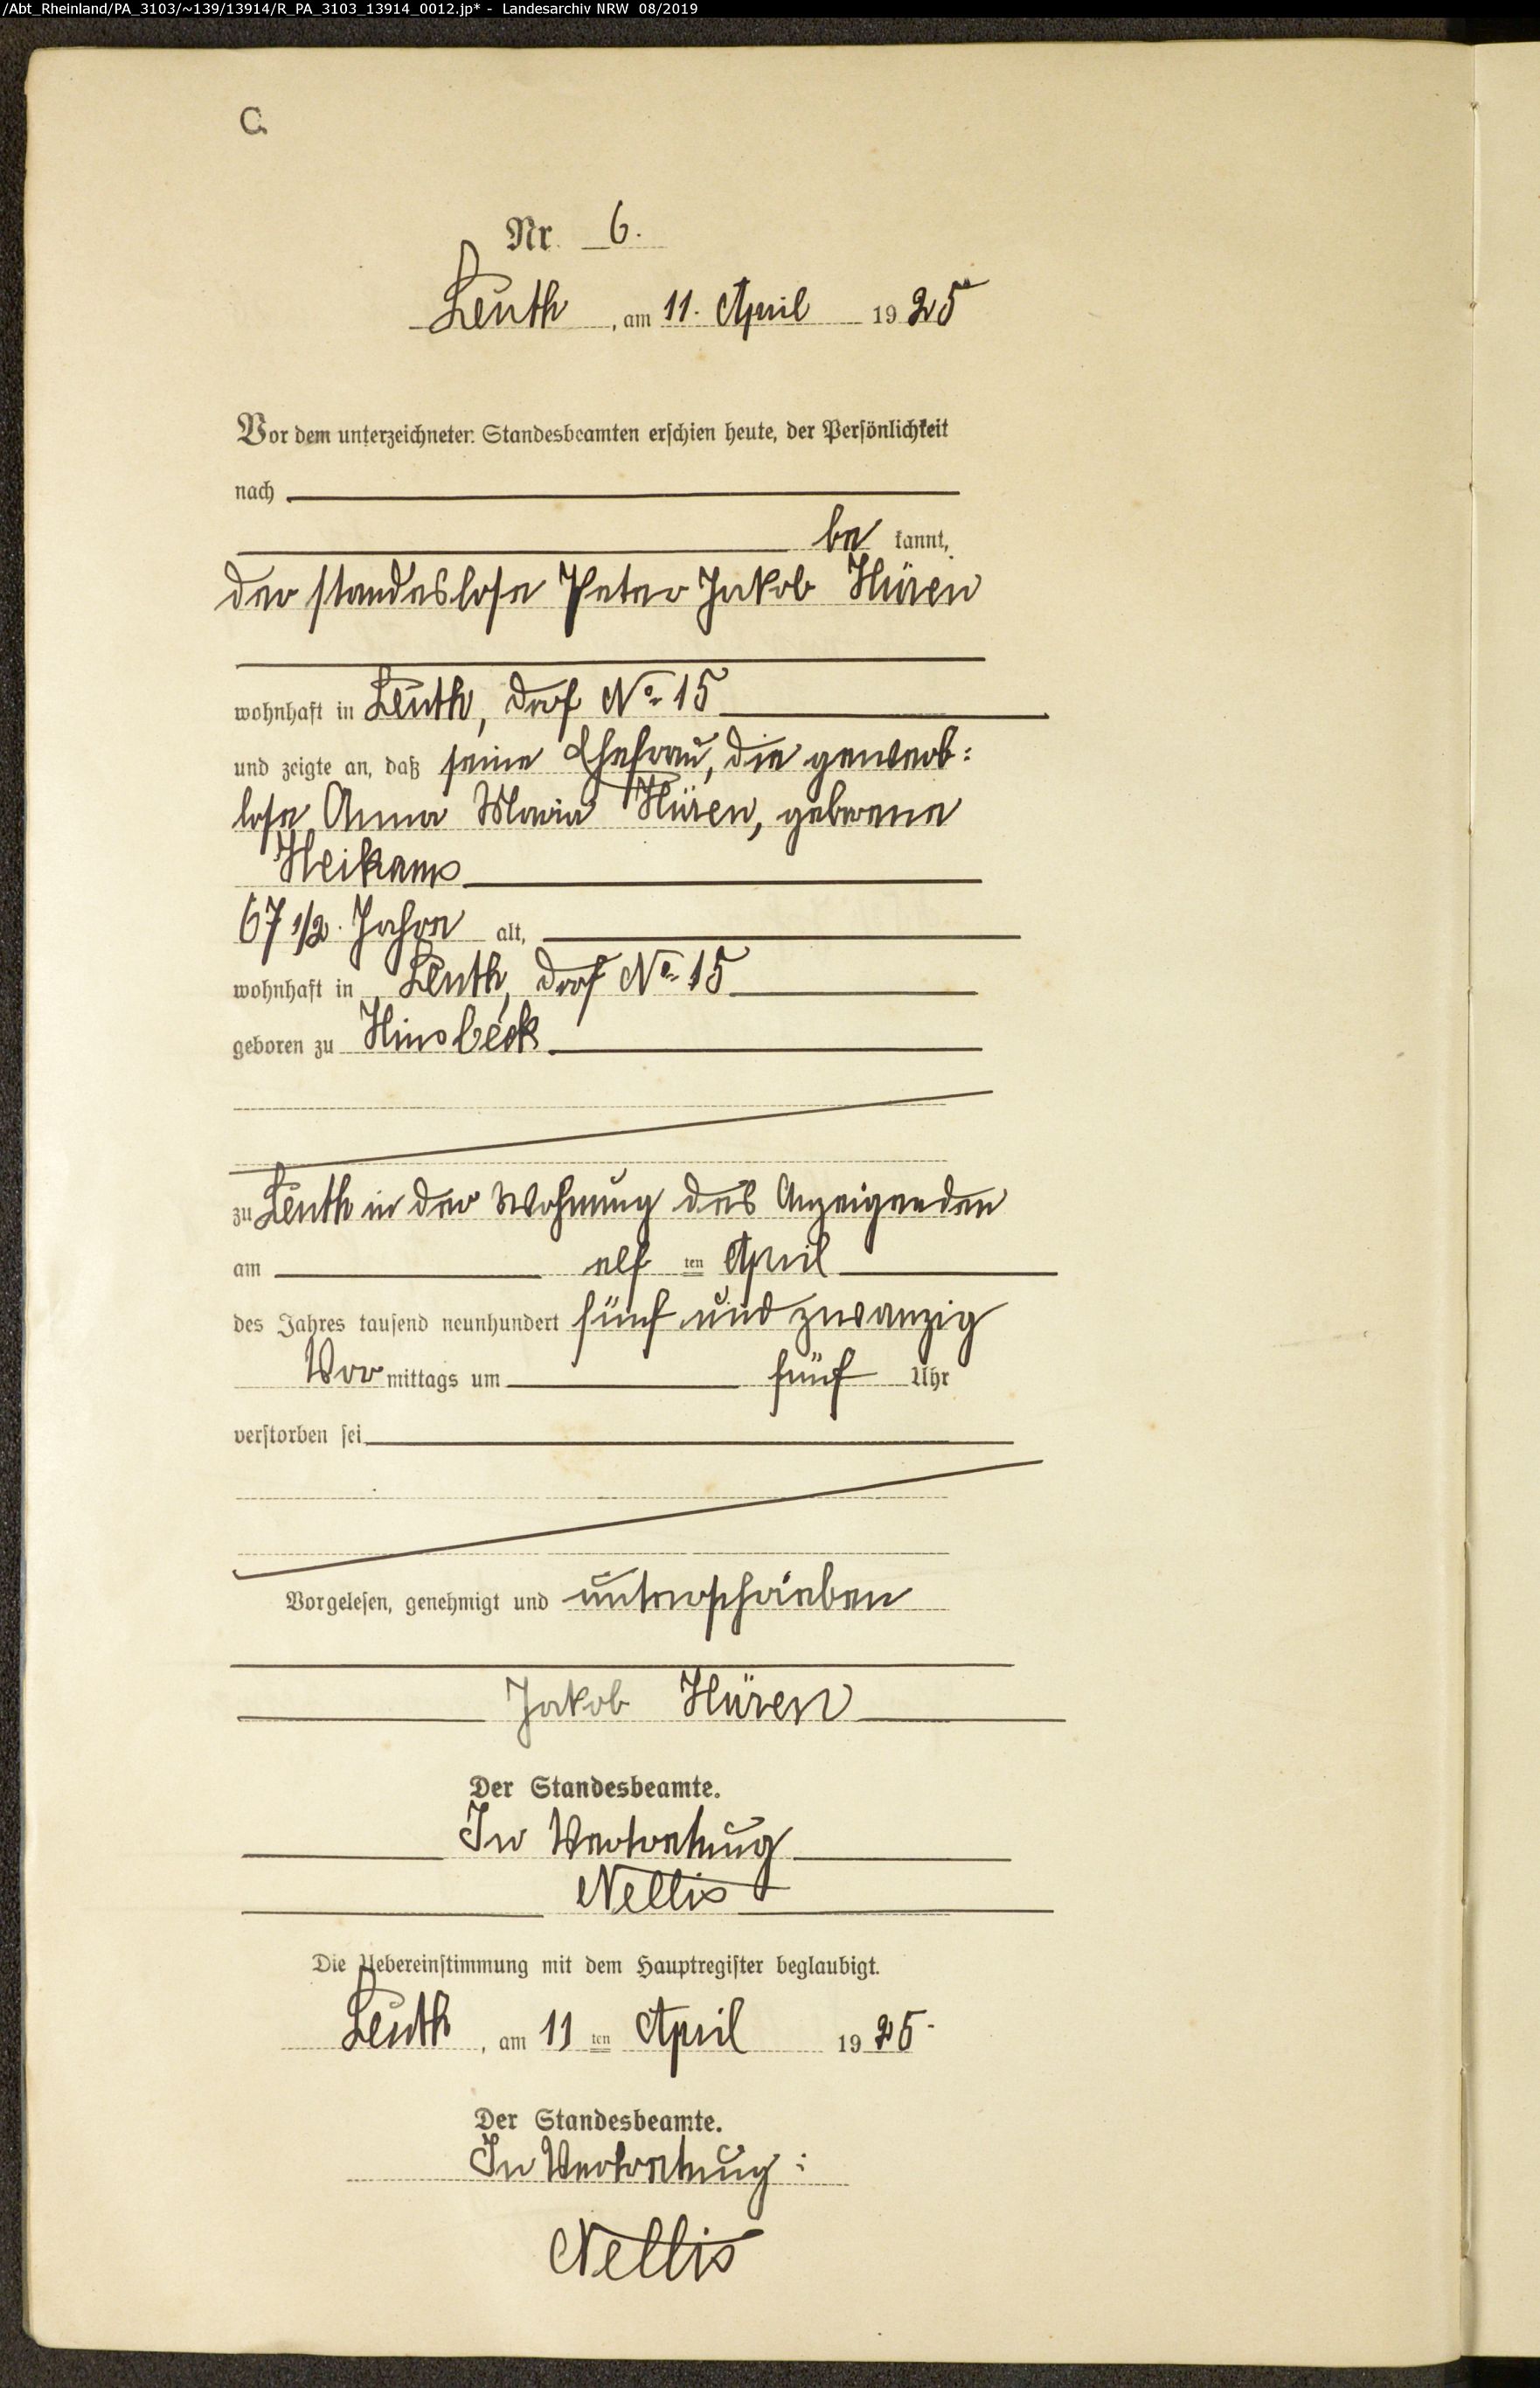 /Abt_Rheinland/PA_3103/~139/13914/R_PA_3103_13914_0012.jp* - Landesarchiv NRW 08/2019
C.
Nr. 6.
Leuth, am 11. April 1925
Vor dem unterzeichneten Standesbeamten erschien heute, der Persönlichkeit
nach
be kannt,
der standeslose Peter Jakob Hüren
wohnhaft in Leuth, Dorf No 15
und zeigte an, daß seine Ehefrau, die gewerb:
lose Anna Maria Hüren, geborene
Heikamp
67 1/2 Jahre alt,
wohnhaft in Leuth, Dorf No 15
geboren zu Hinsbeck
zu Leuth in der Wohnung des Anzeigenden
am elf ten April
des Jahres tausend neunhundert fünf und zwanzig
Vor mittags um fünf Uhr
verstorben sei
Vorgelesen, genehmigt und unterschrieben
Jakob Hüren
Der Standesbeamte.
In Vertretung
Nellis
Die Uebereinstimmung mit dem Hauptregister beglaubigt.
Leuth, am 11 ten April 1925.
Der Standesbeamte.
In Vertretung:
Nellis